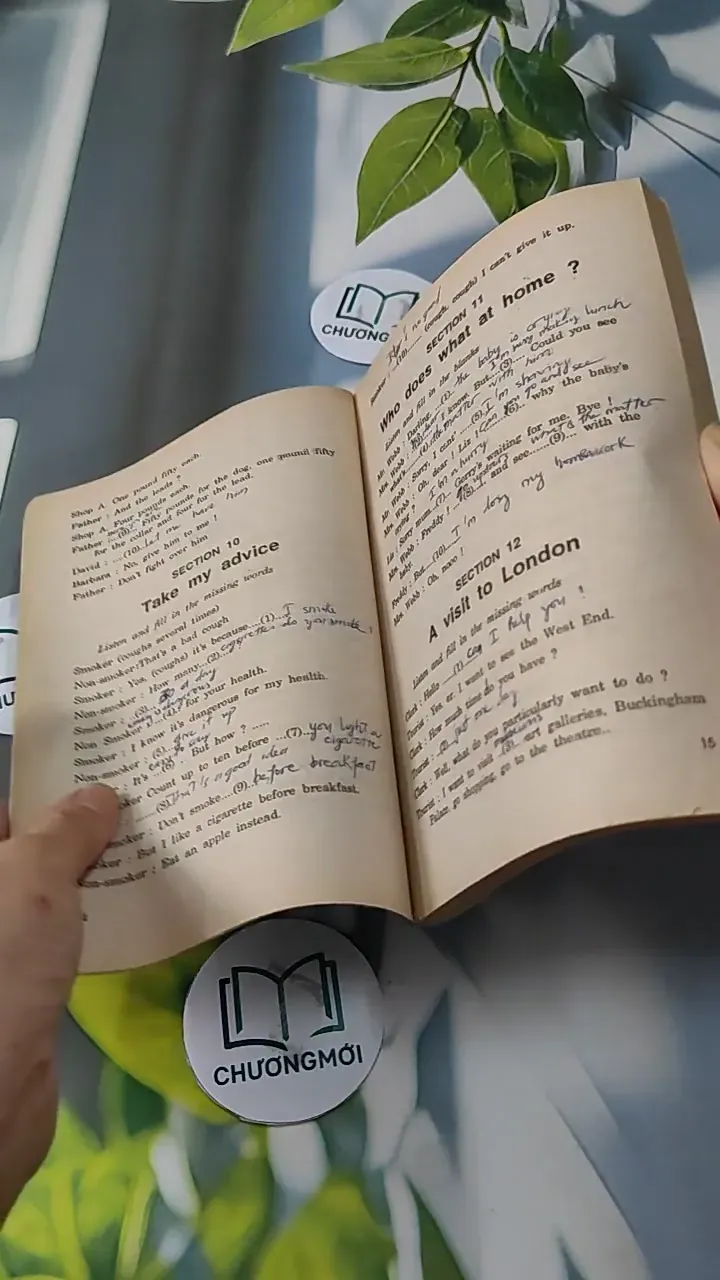 Shop A. One pound fifty each.
Father : And the leads ?
Shop A. Four pounds each.
Father ...(9)... Fifty pounds for the dog, one pound fifty
for the collar and four for the lead.
David : ...(10) let me have him
Barbara : No, give him to me !
Father : Don't fight over him
SECTION 10
Take my advice
Listen and fill in the missing words
Smoker (coughs several times)
Non-smoker:That's a bad cough
Smoker : Yes, (coughs) it's because....(1)... I smoke
Non-smoker : How many...(2)... cigarettes do you smoke ?
Smoker : ...(3)... a day
Non Smoker ...(4)... for your health.
Smoker : I know it's dangerous for my health.
Non-smoker : (5) give it up
: It's ...(6)... But how ? .....
Count up to ten before ...(7)... you light a
cigarette
.......(8) That's a good idea
smoker : Don't smoke....(9)... before breakfast
oker : But I like a cigarette before breakfast.
n-smoker : Eat an apple instead.
...(10)...... (cough, cough) I can't give it up.
SECTION 11
Who does what at home ?
Listen and fill in the blanks
Mr Webb : Darling...(1)... the baby is crying
Mrs Webb : I know. But...(3)... Could you see
I'm busy making lunch
what's...(4) the matter with him
Mr Webb : Sorry, I cant ...(5) I'm shaving
Mrs Webb : Oh, dear ! Liz ! Can you go and see
...(6)... why the baby's
crying ? I'm in a hurry
Liz : Sorry mum...(7)... Gerry's waiting for me. Bye !
Mrs Webb : Freddy ! ...(8)... and see......(9)... with the
what's the matter
baby.
Freddy : But....(10)... I'm doing my homework
Mrs Webb : Oh, nooo !
SECTION 12
A visit to London
Listen and fill in the missing words
Clerk : Hello ...(1) Can I help you !
Tourist : Yes, er, I want to see the West End.
Clerk : How much time do you have ?
Tourist : ...(2) just one day
Clerk : Well, what do you particularly want to do ?
Tourist : I want to visit ...(3) museums art galleries, Buckingham
Palace, go shopping, go to the theatre..
15
CHƯƠNG
CHƯƠNGMỚI